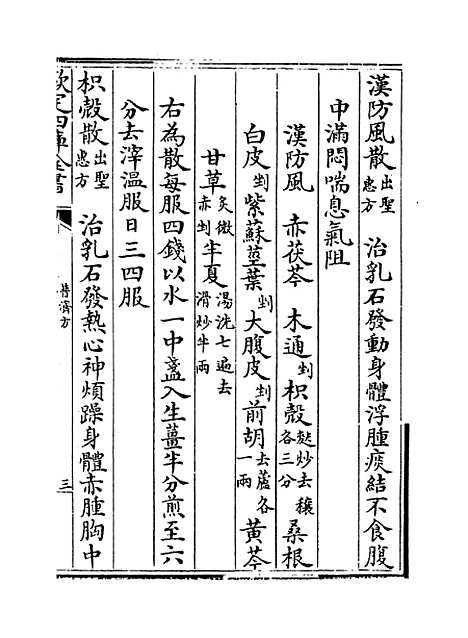 漢防風散出聖惠方 治乳石發動身體浮腫痰結不食腹
中滿悶喘息氣阻
漢防風 赤茯苓 木通剉 枳殼麩炒去穰各三分 桑根
白皮剉 紫蘇莖葉剉 大腹皮剉 前胡去蘆各一兩 黃芩
甘草炙微赤剉 半夏湯洗七遍去滑炒半兩
右為散每服四錢以水一中盞入生薑半分煎至六
分去滓溫服日三四服
枳殼散出聖惠方 治乳石發熱心神煩躁身體赤腫胸中
欽定四庫全書
普濟方
三